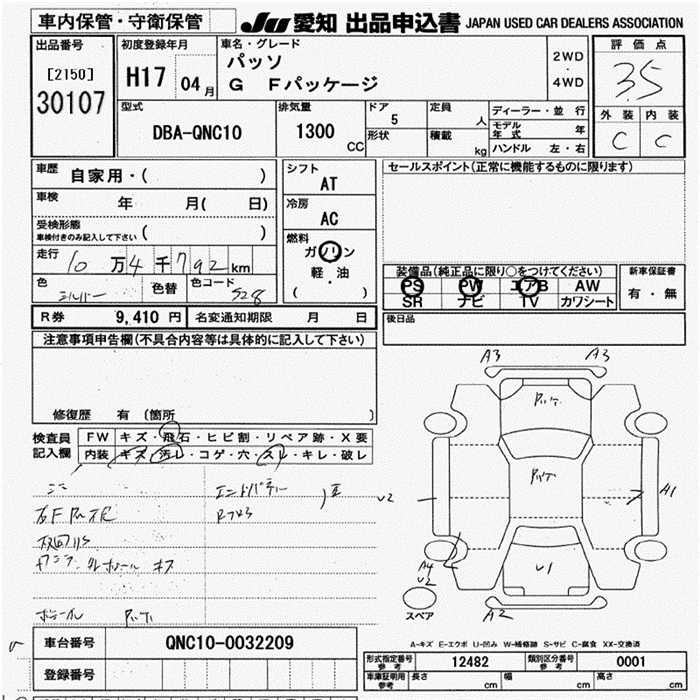 車内保管・守衛保管
JU 愛知 出品申込書 JAPAN USED CAR DEALERS ASSOCIATION
出品番号
[2150]
30107
初度登録年月
H17 04 月
車名・グレード
パッソ
G Fパッケージ
2WD
・
4WD
評価点
3.5
外装 内装
C C
型式
DBA-QNC10
排気量
1300 CC
ドア
5
形状
定員
人
積載
kg
ディーラー・並行
モデル年式 年
ハンドル 左・右
車歴
自家用・( )
車検
年 月( 日)
受検形態
車検付きのみ記入して下さい ( )
走行
10 万 4 千 792 km
色
シルバー
色替
色コード
S28
シフト
AT
冷房
AC
燃料
ガソリン
軽・油
( )
セールスポイント(正常に機能するものに限ります)
装備品(純正品に限り○をつけてください)
PS PW エアB AW
SR ナビ TV カワシート
新車保証書
有・無
後日品
R券 9,410 円 名変通知期限 月 日
注意事項申告欄(不具合内容等は具体的に記入して下さい)
修復歴 有 (箇所 )
検査員記入欄
FW キズ・飛石・ヒビ割・リペア跡・X要
内装 キズ・汚レ・コゲ・穴・スレ・キレ・破レ
A3 A3
U2
A1
A4
U2
U1
A2
スペア
車台番号 QNC10-0032209
登録番号
A-キズ E-エクボ U-凹み W-補修跡 S-サビ C-腐食 XX-交換済
形式指定番号 参考 12482 類別区分番号 参考 0001
車庫証明用 参考 長さ cm 幅 cm 高さ cm